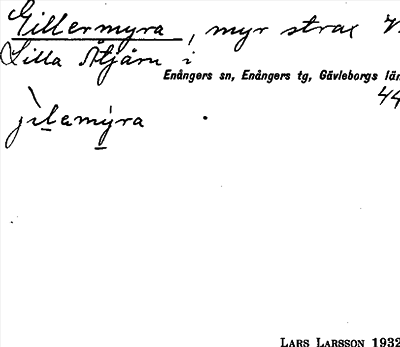 Gillermyra, myr strax V.
Lilla Åtjärn i
Enångers sn, Enångers tg, Gävleborgs län
44
jìlemýra
LARS LARSSON 1932